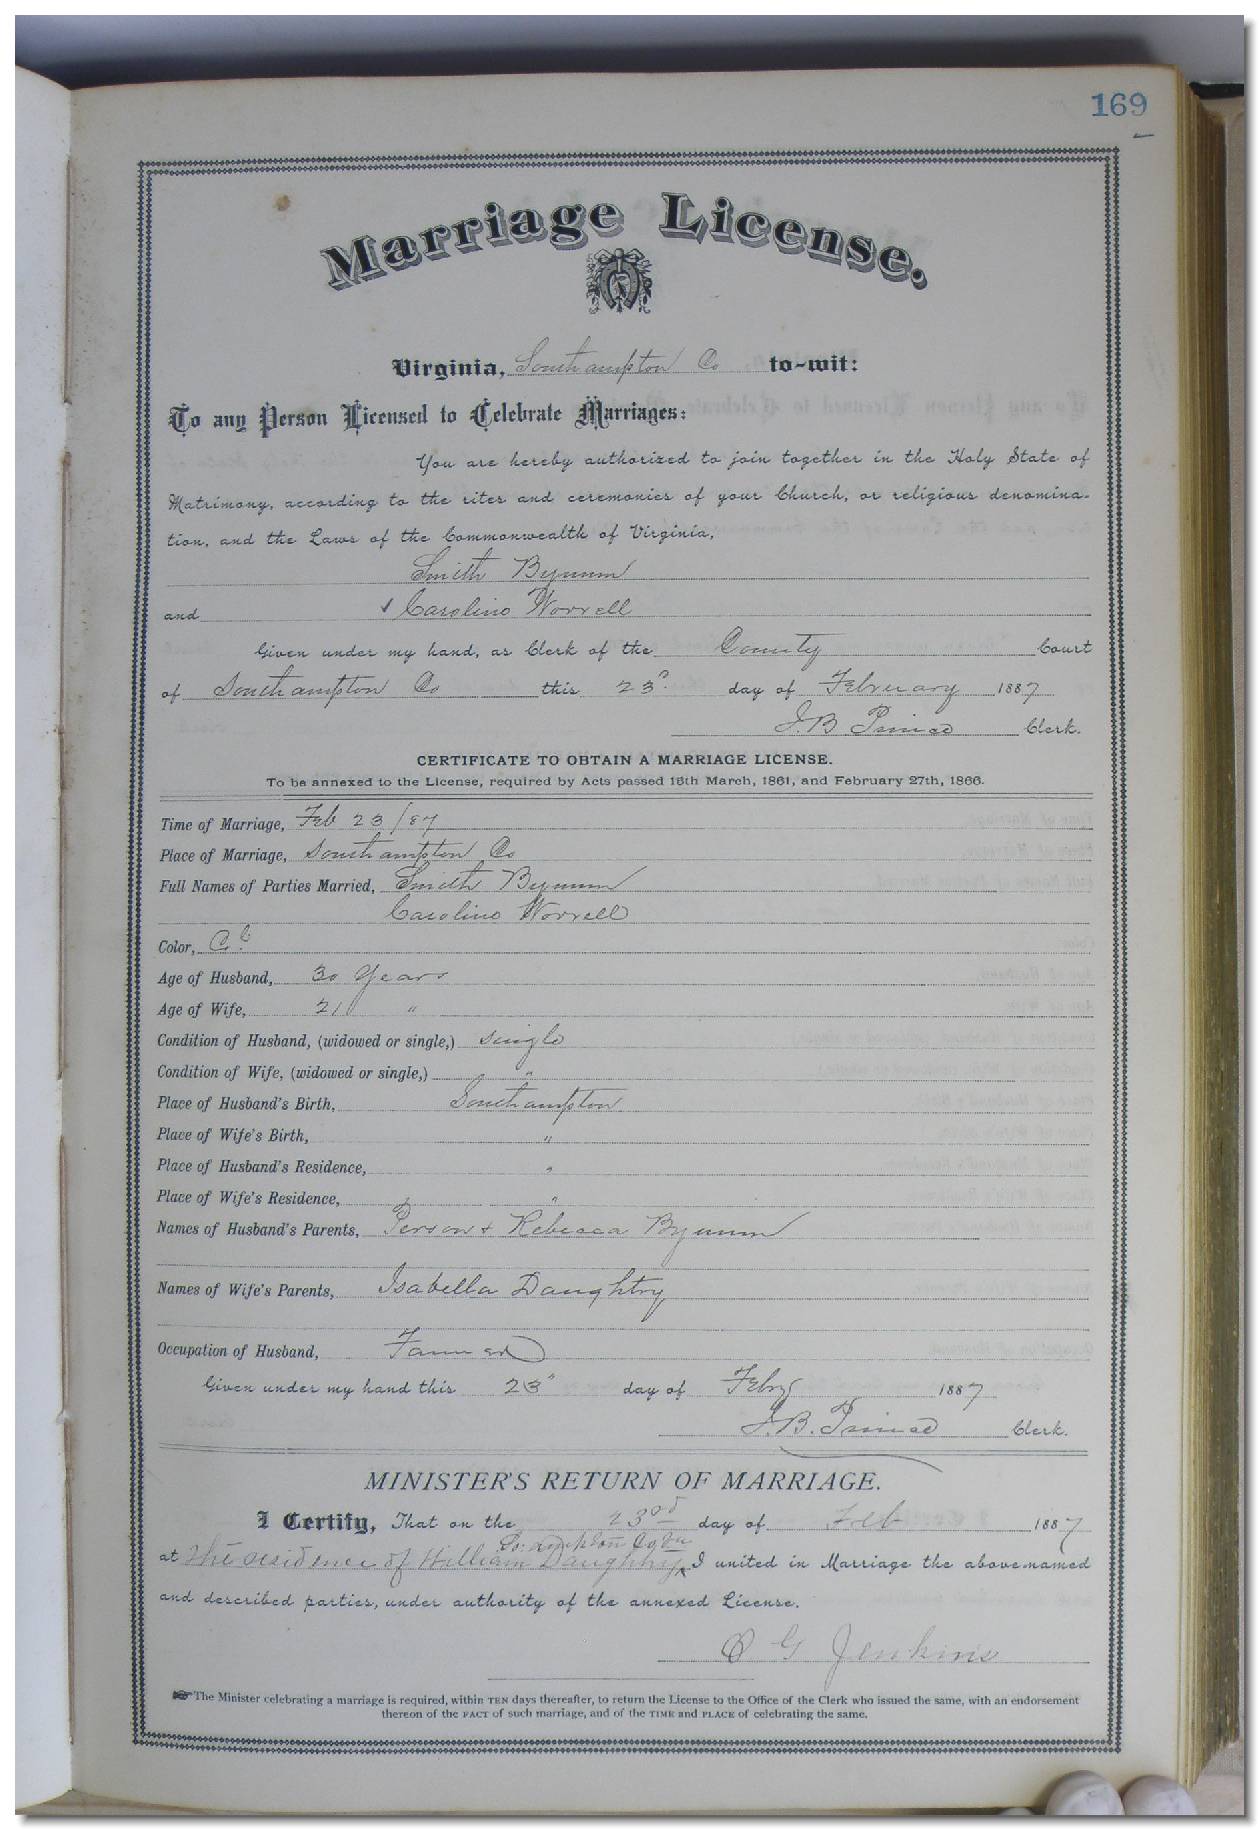 169
Marriage License.
Virginia, Southampton Co to-wit:
To any Person Licensed to Celebrate Marriages:
You are hereby authorized to join together in the Holy State of
Matrimony, according to the rites and ceremonies of your Church, or religious denomina-
tion, and the Laws of the Commonwealth of Virginia,
Smith Bynum
and Caroline Worrell
Given under my hand, as Clerk of the County Court
of Southampton Co this 23" day of February 1887
J.B. Prince Clerk.
CERTIFICATE TO OBTAIN A MARRIAGE LICENSE.
To be annexed to the License, required by Acts passed 16th March, 1861, and February 27th, 1866.
Time of Marriage, Feb 23/87
Place of Marriage, Southampton Co
Full Names of Parties Married, Smith Bynum
Caroline Worrell
Color, Cd
Age of Husband, 30 Years
Age of Wife, 21 "
Condition of Husband, (widowed or single,) single
Condition of Wife, (widowed or single,) "
Place of Husband's Birth, Southampton
Place of Wife's Birth, "
Place of Husband's Residence, "
Place of Wife's Residence, "
Names of Husband's Parents, Person & Rebecca Bynum
Names of Wife's Parents, Isabella Daughtry
Occupation of Husband, Farmer
Given under my hand this 23" day of Feby 1887
J.B. Prince Clerk.
MINISTER'S RETURN OF MARRIAGE.
I Certify, That on the 23rd day of Feb 1887
So.ampton Co Va
at the residence of William Daughtry I united in Marriage the above-named
and described parties, under authority of the annexed License.
G Jenkins
The Minister celebrating a marriage is required, within TEN days thereafter, to return the License to the Office of the Clerk who issued the same, with an endorsement
thereon of the FACT of such marriage, and of the TIME and PLACE of celebrating the same.